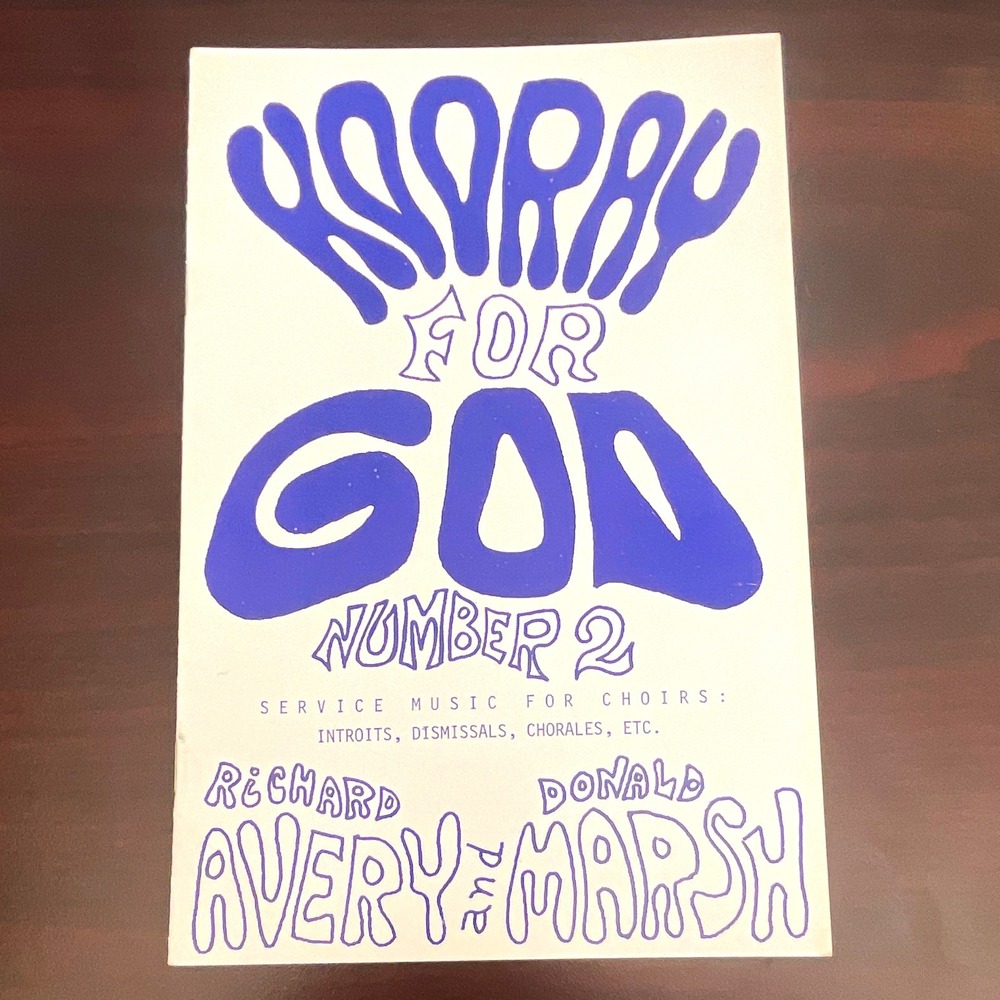 HOORAY
FOR
GOD
NUMBER 2
SERVICE MUSIC FOR CHOIRS:
INTROITS, DISMISSALS, CHORALES, ETC.
RiCHARD
AVERY
and
DONALD
MARSH